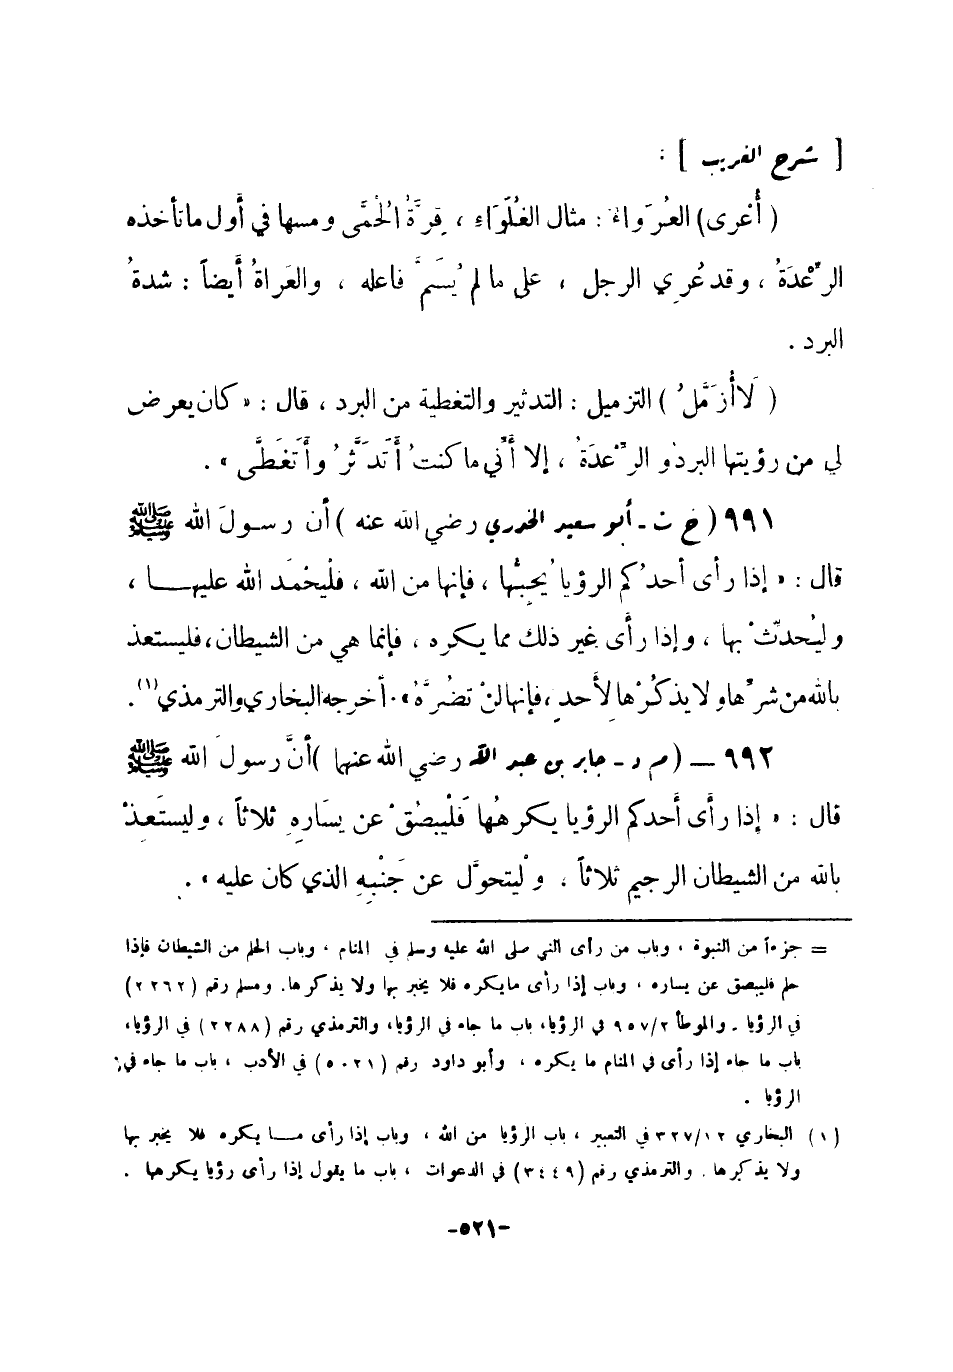 [ شرح الغريب ] :
( أُعْرى) العُرَواءُ : مثال الغُلَوَاءِ ، قِرَّةُ الحُمَّى ومسها في أول ما تأخذه
الرِّعْدَةُ ، وقد عُرِي الرجل ، على ما لم يُسَمَّ فاعله ، والعَراةُ أيضاً : شدةُ
البرد .
( لَا أُزَمَّلُ ) التزميل : التدثير والتغطية من البرد ، قال : « كان يعرض
لي من رؤيتها البرد و الرِّعْدَةُ ، إلا أَنِّي ما كنتُ أَتدَثَّرُ وأَتَغَطَّى » .
٩٩١ ( خ ت - أبو سعيد الخدري رضي الله عنه ) أن رسولَ الله ﷺ
قال : « إذا رأى أحدُكم الرؤيا يُحِبُّها ، فإنها من الله ، فلْيَحْمَد الله عليهـا ،
وليُحدِّثْ بها ، وإذا رأى غير ذلك مما يكره ، فإنما هي من الشيطان ، فليستعذ
بالله من شرِّها ولا يذكُرْها لِأَحد ، فإنها لنْ تضُرَّهُ » . أخرجه البخاري والترمذي (١) .
٩٩٢ – ( م د - جابر بن عبد الله رضي الله عنهما ) أَنَّ رسولَ الله ﷺ
قال : « إذا رأى أَحدكم الرؤيا يكرهُها فَلْيبصُقْ عن يسَارِهِ ثلاثاً ، وليستَعِذْ
بالله من الشيطان الرجيم ثلاثاً ، ولْيتحوَّل عن جَنْبِهِ الذي كان عليه » .
= جزءاً من النبوة ، وباب من رأى النبي صلى الله عليه وسلم في المنام ، وباب الحلم من الشيطان فإذا
حلم فليبصق عن يساره ، وباب إذا رأى ما يكره فلا يخبر بها ولا يذكرها. ومسلم رقم (٢٢٦٢)
في الرؤيا . والموطأ ٩٥٧/٢ في الرؤيا ، باب ما جاء في الرؤيا، والترمذي رقم (٢٢٨٨) في الرؤيا،
باب ما جاء إذا رأى في المنام ما يكره ، وأبو داود رقم (٥٠٢١) في الأدب ، باب ما جاء في
الرؤيا .
(١) البخاري ٣٢٧/١٢ في التعبير ، باب الرؤيا من الله ، وباب إذا رأى مـا يكره فلا يخبر بها
ولا يذكرها . والترمذي رقم (٣٤٤٩) في الدعوات ، باب ما يقول إذا رأى رؤيا يكرهها .
-٥٢١-